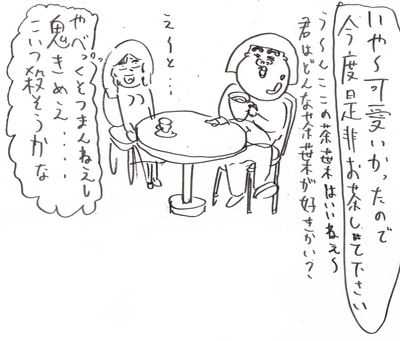 いや~可愛いかったので
今度是非お茶しせて下さい
う~んここの茶葉はいいねえ~
君はどんな茶葉が好きかい?
え~と…
やべっくそつまんねえし
鬼きめえ…
こいつ殺そうかな